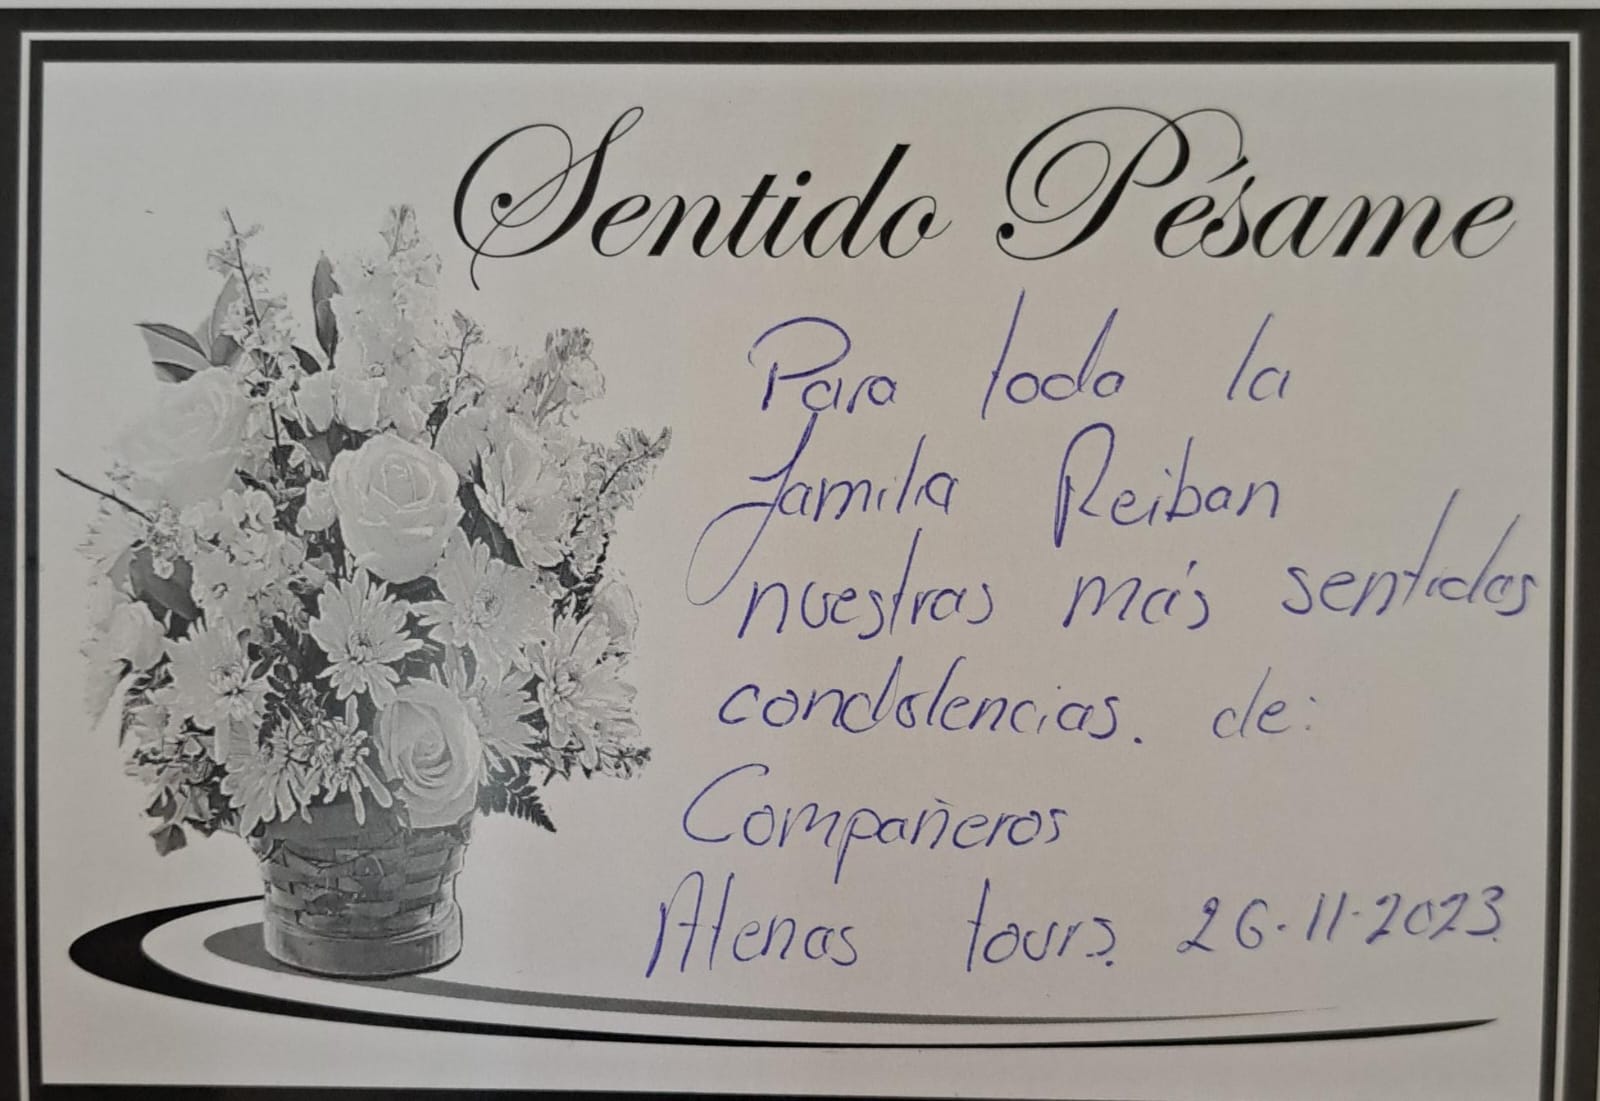 Sentido Pésame
Para toda la
familia Reiban
nuestras más sentidas
condolencias. de:
Compañeros
Atenas tours. 26-11-2023.